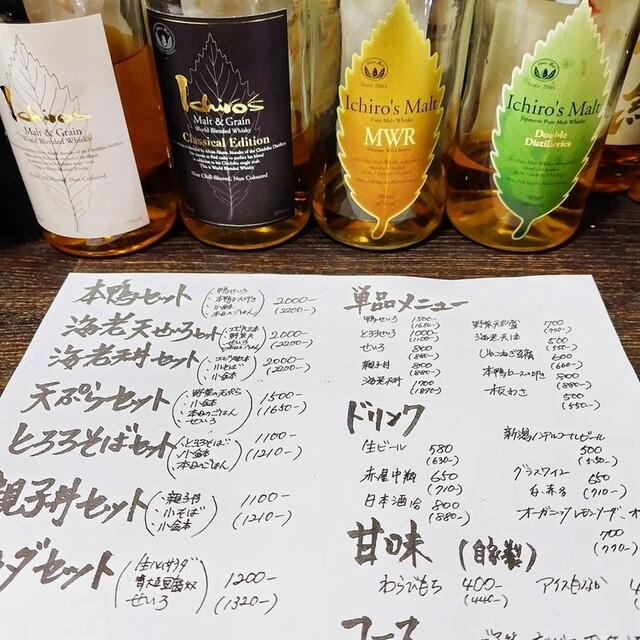 Ichiro's
Malt & Grain
World Blended Whisky
Ichiro's
Malt & Grain
World Blended Whisky
Classical Edition
Non Chill-filtered, Non Coloured
Since 2004
Ichiro's Malt
Pure Malt Whisky
MWR
Since 2004
Ichiro's Malt
Japanese Pure Malt Whisky
Double
Distilleries
本鴨セット
・鴨せいろ
・小金本
・本日のごはん
2000-
(2200-)
海老天せいろセット
せいろ
2000-
(2200-)
海老天丼セット
・小そば
・小金本
2000-
(2200-)
天ぷらセット
・野菜の天ぷら
・小金本
・本日のごはん
・せいろ
1500-
(1650-)
とろろそばセット
・とろろそば
・小金本
・本日のごはん
1100-
(1210-)
親子丼セット
・親子丼
・小そば
・小金本
1100-
(1210-)
ダセット
せいろ
1200-
(1320-)
単品メニュー
鴨せいろ 1500- (1650-)
とろろせいろ 1000- (1100-)
せいろ 800 (880-)
親子丼 800 (880-)
海老天丼 1700 (1870-)
野菜天ぷら盛 700 (770-)
海老天1本 500 (550-)
600 (660-)
800 (880-)
板わさ 500 (550-)
ドリンク
生ビール 580 (630-)
赤星中瓶 650 (710-)
日本酒1合 800 (880-)
新潟ノンアルコールビール
500 (550-)
グラスワイン 650
白、赤 (710-)
オーガニックレモンソーダ、オ
700
(770-)
甘味 (自家製)
わらびもち 400- (440-)
アイスもなか 4
コース